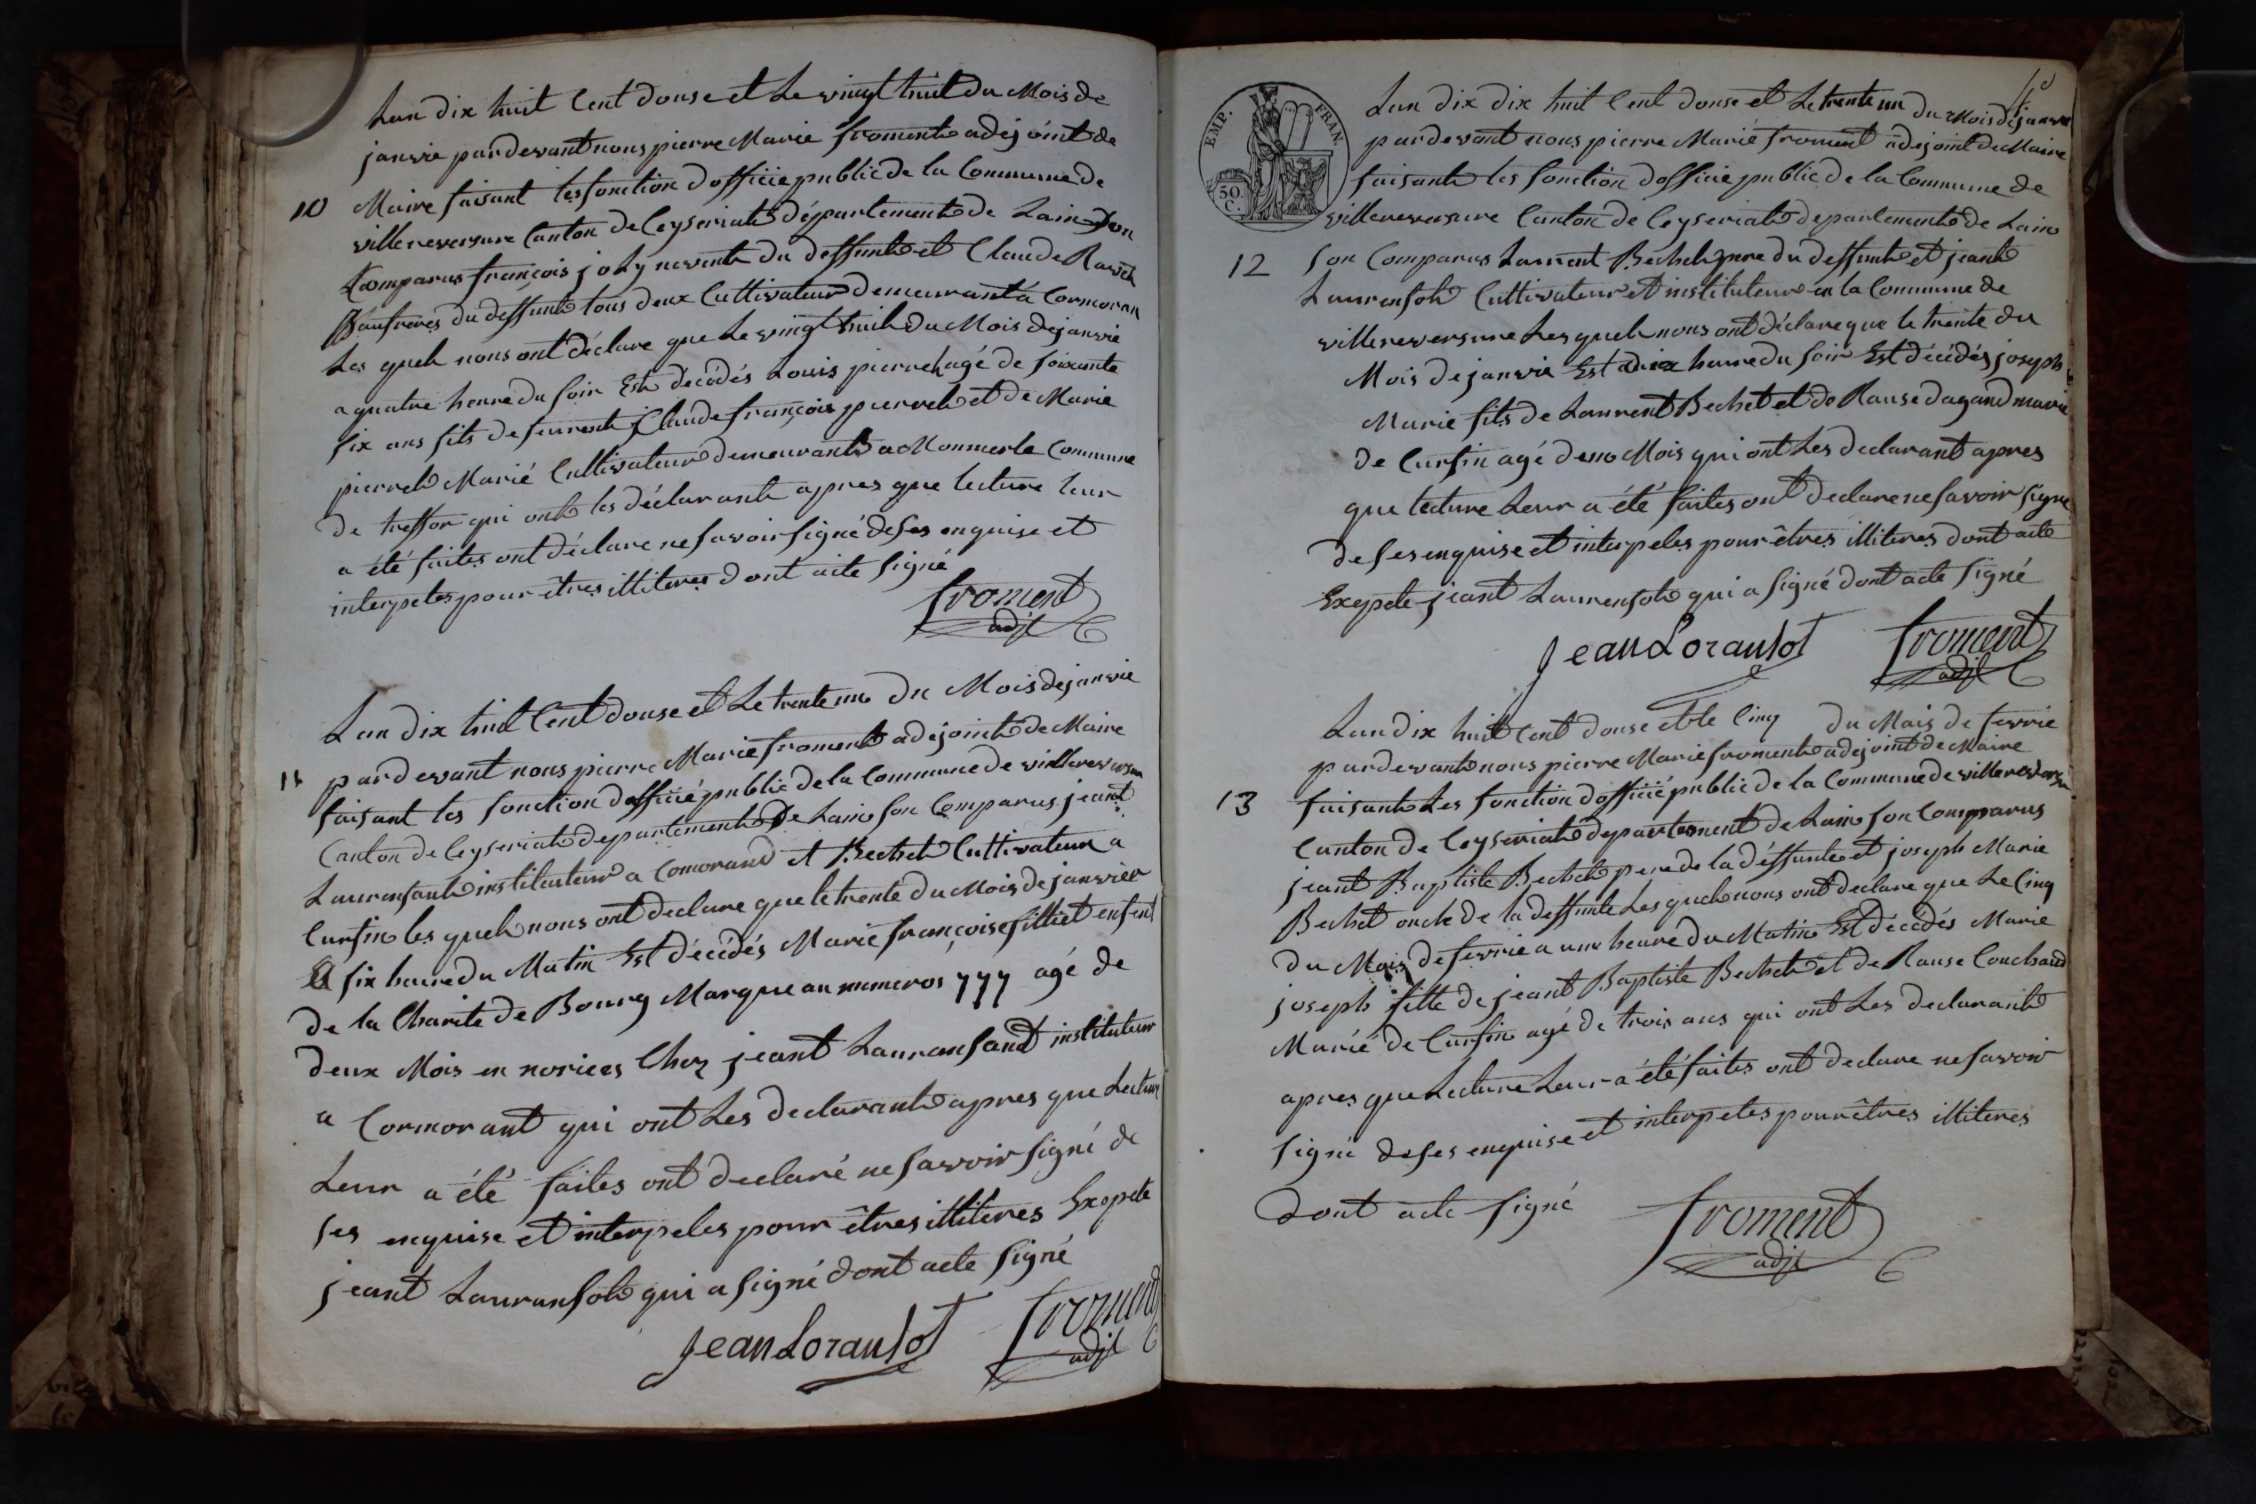 Lan dix huit Cent donse et Le vingt huit du Mois de
janvie pardevant nous pierre Marie froment adejoint de
10 Maire faisant les fonction dofficie public de la Commune de
villereversure Canton de Ceyseriat département de Lain Son
Comparus françois joly nevent du deffunt et Claude Ravet
Baufreres du deffunt tous deux Cultivateur demeurant a Cormoran
Les quel nous ont déclare que Le vingt huit du Mois de janvie
a quatre heure du soir Est décédés Louis pierret agé de soixante
six ans fils de feurent Claude françois pierret et de Marie
pierret Marié Cultivateur demeurant a Monmerle Commune
de treffor qui ont les déclarant apres que lecture leur
a été faites ont déclare ne savoir signé de ses enquise et
interpeles pour êtres illiteres dont acte signé
froment
adjt
Lan dix huit Cent donse et Le trente un du Mois de janvie
11 pardevant nous pierre Marie froment adejoint de Maire
faisant les fonction dofficié public de la Commune de villereversure
Canton de Ceyseriat departement de Lain son Comparus jeant
Lauransant instituteur a Comorand et Bechet Cultivateur a
Cursin les quel nous ont declare que le trente du Mois de janvier
a six heure du Matin Est décédés Marie françoise filliet enfent
de la Charite de Bourg Marque au numeros 777 agé de
deux Mois en norices Chez jeant Lauransant instituteur
a Cormorant qui ont Les declarant apres que Lecture
Leur a été faites ont declaré ne savoir signé de
ses enquise et interpeles pour êtres illiteres Exepete
jeant Lauransot qui a signé dont acte signé
Jean Loransot froment
adjt
Lan dix dix huit Cent donse et Le trente un du Mois de janvie
pardevant nous pierre Marié froment adejoint de Maire
EMP. FRAN.
50 C.
faisant les fonction dofficie public de la Commune de
villereversure Canton de Ceyseriat departement de Lain
12 son Comparus Laurent Bechet pere du deffunt et jeant
Laurensot Cultivateur et instituteur en la Commune de
villereversure Les quel nous ont déclare que le trente du
Mois de janvie Est a dix heure du soir Est décédés joseph
Marie fils de Laurent Bechet et de Rause dagand marie
de Cursin agé de un Mois qui ont Les declarant apres
que lecture Leur a été faites ont declare ne savoir signe
de ses enquise et interpeles pour êtres illiteres dont acte
Exepete jeant Laurensot qui a signé dont acte signé
Jean Loransot froment
adjt
Lan dix huit Cent donse et le Cinq du Mois de fevrie
pardevant nous pierre Marie froment adejoint de Maire
13 faisant Les fonction dofficié public de la Commune de villereversure
Canton de Ceyseriat departement de Lain son Comparus
jeant Baptiste Bechet pere de la déffunte et joseph Marie
Bechet oncle de la deffunte Les quel nous ont declare que Le Cinq
du Mois de fevrie a une heure du Matin Est décédés Marie
joseph fille de jeant Baptiste Bechet et de Rause Couchand
Marié de Cursin agé de trois ans qui ont Les declarant
apres que Lecture Leur a été faites ont declare ne savoir
signé de ses enquise et interpeles pour êtres illiteres
dont acte signé froment
adjt